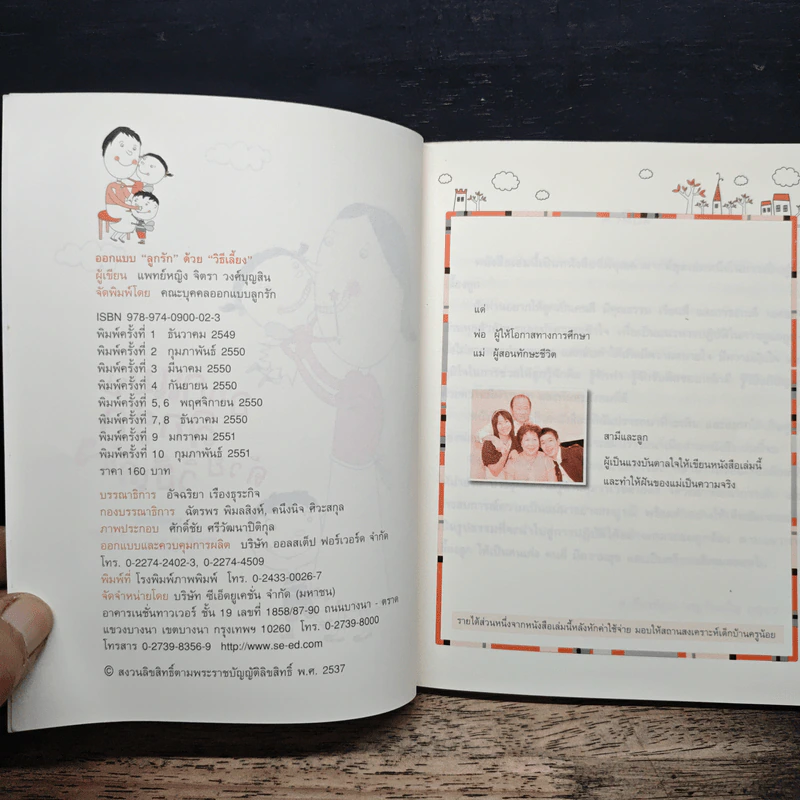 ออกแบบ "ลูกรัก" ด้วย "วิธีเลี้ยง"
ผู้เขียน แพทย์หญิง จิตรา วงศ์บุญสิน
จัดพิมพ์โดย คณะบุคคลออกแบบลูกรัก
ISBN 978-974-0900-02-3
พิมพ์ครั้งที่ 1 ธันวาคม 2549
พิมพ์ครั้งที่ 2 กุมภาพันธ์ 2550
พิมพ์ครั้งที่ 3 มีนาคม 2550
พิมพ์ครั้งที่ 4 กันยายน 2550
พิมพ์ครั้งที่ 5, 6 พฤศจิกายน 2550
พิมพ์ครั้งที่ 7, 8 ธันวาคม 2550
พิมพ์ครั้งที่ 9 มกราคม 2551
พิมพ์ครั้งที่ 10 กุมภาพันธ์ 2551
ราคา 160 บาท
บรรณาธิการ อัจฉริยา เรืองธุระกิจ
กองบรรณาธิการ ฉัตรพร พิมลสิงห์, คนึงนิจ ศิวะสกุล
ภาพประกอบ ศักดิ์ชัย ศรีวัฒนาปิติกุล
ออกแบบและควบคุมการผลิต บริษัท ออลสเต็ป ฟอร์เวอร์ด จำกัด
โทร. 0-2274-2402-3, 0-2274-4509
พิมพ์ที่ โรงพิมพ์ภาพพิมพ์ โทร. 0-2433-0026-7
จัดจำหน่ายโดย บริษัท ซีเอ็ดยูเคชั่น จำกัด (มหาชน)
อาคารเนชั่นทาวเวอร์ ชั้น 19 เลขที่ 1858/87-90 ถนนบางนา - ตราด
แขวงบางนา เขตบางนา กรุงเทพฯ 10260 โทร. 0-2739-8000
โทรสาร 0-2739-8356-9 http://www.se-ed.com
© สงวนลิขสิทธิ์ตามพระราชบัญญัติลิขสิทธิ์ พ.ศ. 2537
แด่
พ่อ ผู้ให้โอกาสทางการศึกษา
แม่ ผู้สอนทักษะชีวิต
สามีและลูก
ผู้เป็นแรงบันดาลใจให้เขียนหนังสือเล่มนี้
และทำให้ฝันของแม่เป็นความจริง
รายได้ส่วนหนึ่งจากหนังสือเล่มนี้หลังหักค่าใช้จ่าย มอบให้สถานสงเคราะห์เด็กบ้านครูน้อย